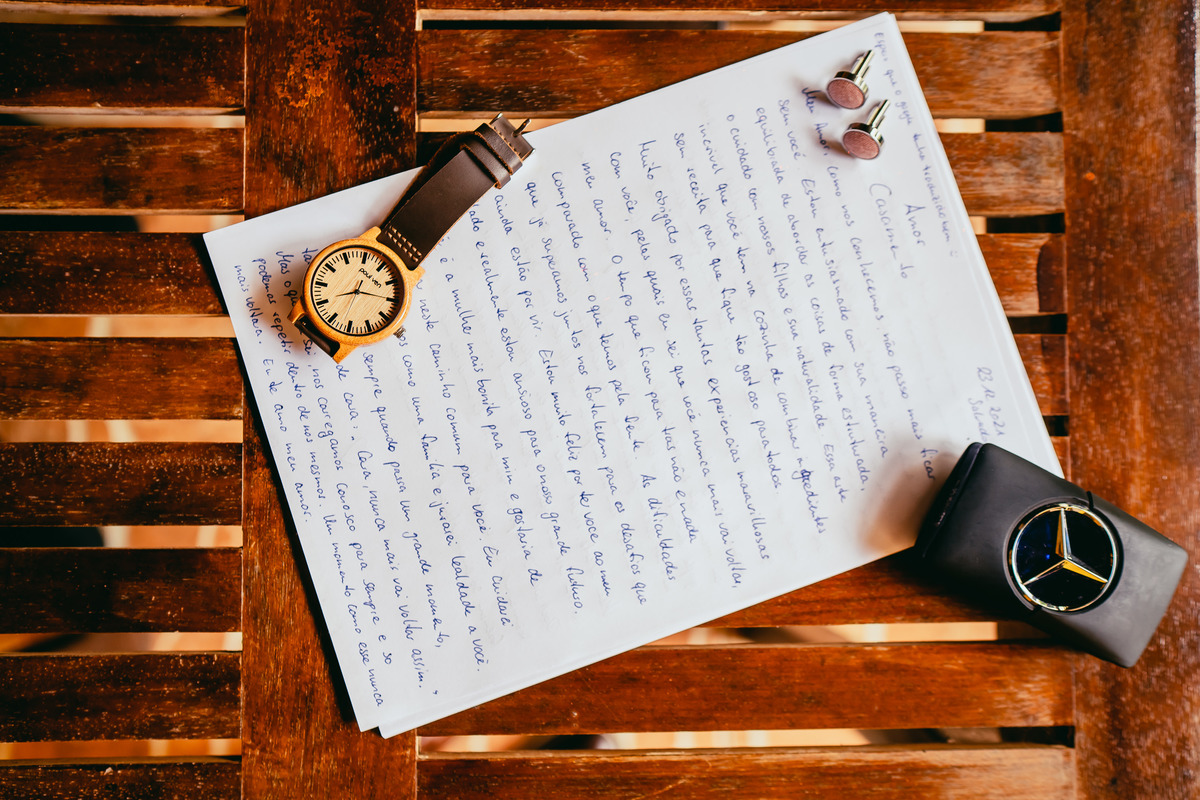 espero que o google tenha traduzido bem :)
23.12.2021
Amor
Casamento
Meu Amor, como nos conhecemos, não passo mais ficar
sem você. Estou entusiasmado com sua maneira
equilibrada de abordar as coisas de forma estruturada,
o cuidado com nossos filhos e sua naturalidade. Essa arte
incrível que você tem na cozinha de combinar ingredientes
sem receita para que fique tão gostoso para todos.
Muito obrigado por essas tantas experiencias maravilhosas
com você, pelas quais eu sei que você nunca mais vai voltar,
meu amor. O tempo que ficou para tras não e nada
comparado com o que temos pela frente. As dificuldades
que já superamos juntos nos fortalecem para os desafios que
ainda estão por vir. Estou muito feliz por ter você ao meu
lado e realmente estou ansioso para o nosso grande futuro.
é a mulher mais bonita para mim e gostaria de
neste caminho comum para você. Eu cuidarei
nos como uma família e jurarei lealdade a você.
sempre quando passa um grande momento,
de cara: „ Cara, nunca mais vai voltar assim."
Mas o que sei nos carregamos conosco para sempre e so
podemos repetir dentro de nos mesmos. Um momento como esse nunca
mais voltara. Eu te amo meu amor.
paul ven